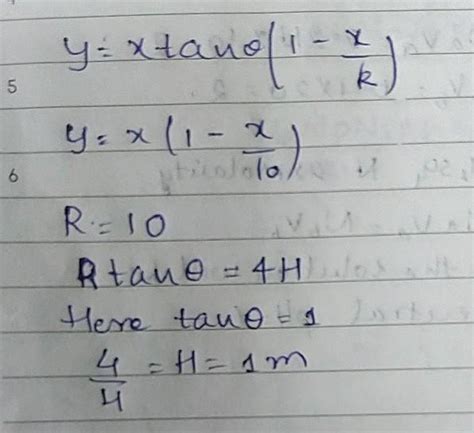 y = x tanθ(1 - x/k)
5
y = x(1 - x/10)
6
R = 10
R tanθ = 4H
Here tanθ = 1
4/4 = H = 1m